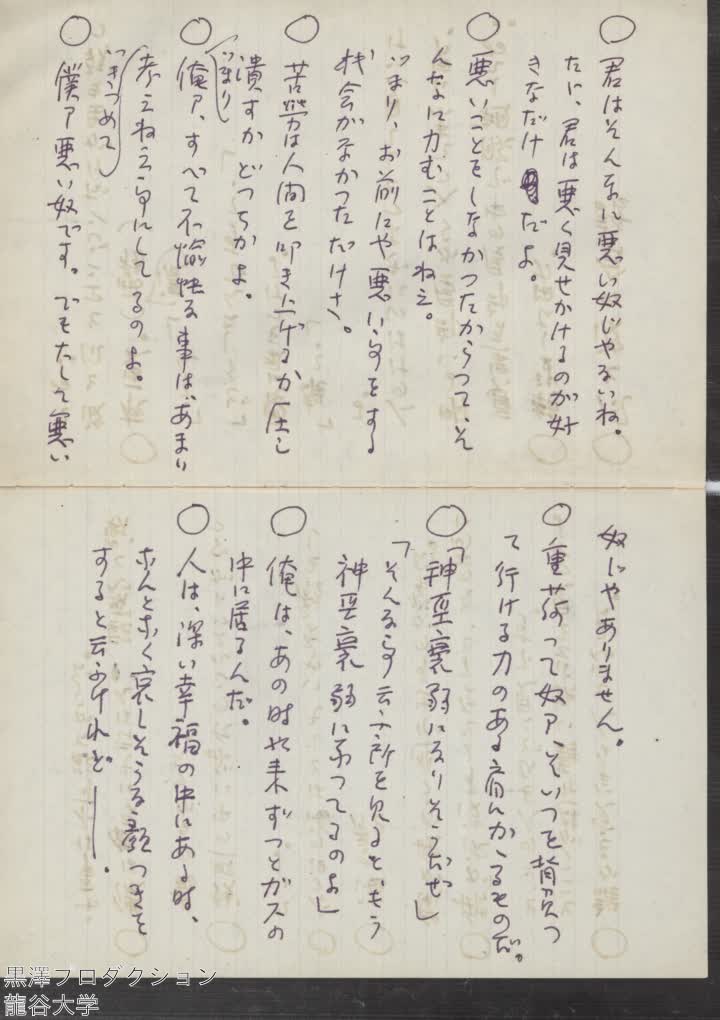 ○君はそんなに悪い奴じやないね。
たゞ、君は悪く見せかけるのが好
きなだけだよ。
○悪いことをしなかつたからつて、そ
んなに力むことはねえ。
つまり、お前にや悪い事をする
機会がなかつただけさ。
○苦労は人間を叩き上げるか圧し
潰すかどつちかよ。
○俺ア、(つまり)すべて不愉快な事は、あまり
考えねえ事にしてるのよ。
○(いきつめて)僕ア悪い奴です。でもたして悪い
奴じやありません。
○重荷つて奴ア、そいつを背負つ
て行ける力のある肩にかゝるものだ。
○「神経衰弱になりそうだぜ」
「そんな事云ふ所を見ると、もう
神経衰弱になつてるのよ」
○俺は、あの時以来ずつとガスの
中に居るんだ。
○人は、深い幸福の中にある時、
ホンとよく哀しそうな顔つきを
すると云ふけれど──。
黒澤プロダクション
龍谷大学